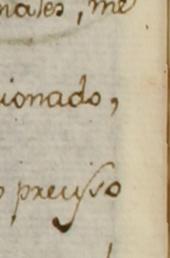 nales, me
ionado,
o preciso